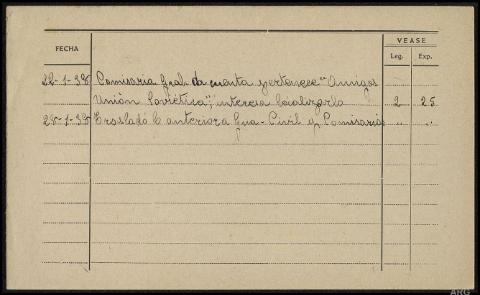 FECHA
VEASE
Leg. Exp.
22-1-38 Comisaria Gral da cuenta pertenece "Amigos
Unión Soviética", interesa localizarlo 2 25
25-1-38 Traslado C anteriora Gua-Civil y Comisarias " "
ARG